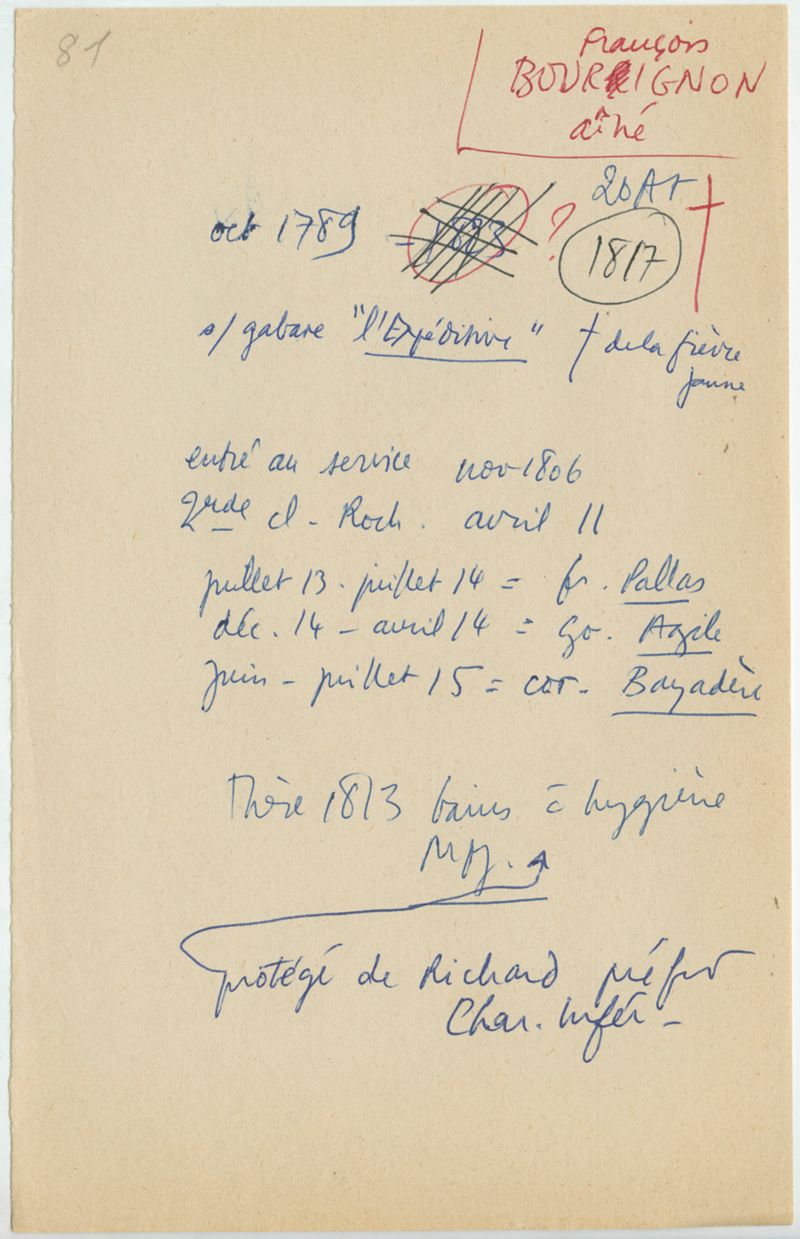 81
François
BOURIGNON
aîné
20 At †
oct 1789 = 1883 ? 1817
s/ gabare "l'Expéditive" † de la fièvre
jaune
entré au service nov 1806
2nde cl - Roch. avril 11
juillet 13 - juillet 14 = fr. Pallas
déc. 14 - avril 14 = Go. Agile
juin - juillet 15 = cor. Bayadère
Thèse 1813 bains = hygiène
protégé de Richard préfet
Char. Infér -